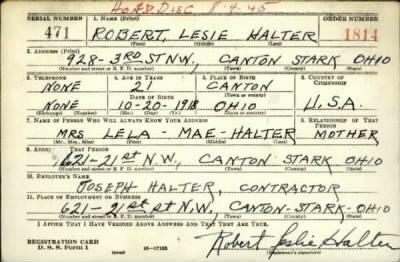 HON DISC 8-4-45
SERIAL NUMBER 1. NAME (Print) ORDER NUMBER
471 ROBERT, LESIE HALTER 1814
(First) (Middle) (Last)
2. ADDRESS (Print)
928-3RD ST NW, CANTON STARK OHIO
(Number and street or R. F. D. number) (Town) (County) (State)
3. TELEPHONE 4. AGE IN YEARS 5. PLACE OF BIRTH 6. COUNTRY OF CITIZENSHIP
NONE 21 CANTON
DATE OF BIRTH (Town or county)
NONE 10-20-1918 OHIO U.S.A.
(Exchange) (Number) (Mo.) (Day) (Yr.) (State or country)
7. NAME OF PERSON WHO WILL ALWAYS KNOW YOUR ADDRESS 8. RELATIONSHIP OF THAT PERSON
MRS LELA - MAE-HALTER MOTHER
(Mr., Mrs., Miss) (First) (Middle) (Last)
9. ADDRESS OF THAT PERSON
1621-21st N.W, CANTON STARK OHIO
(Number and street or R. F. D. number) (Town) (County) (State)
10. EMPLOYER'S NAME
JOSEPH HALTER, CONTRACTOR
11. PLACE OF EMPLOYMENT OR BUSINESS
1621-21st st N,W, CANTON-STARK-OHIO
(Number and street or R. F. D. number) (Town) (County) (State)
I AFFIRM THAT I HAVE VERIFIED ABOVE ANSWERS AND THAT THEY ARE TRUE.
REGISTRATION CARD
D. S. S. Form 1 (over) 16-17105 Robert Leslie Halter
(Registrant's signature)